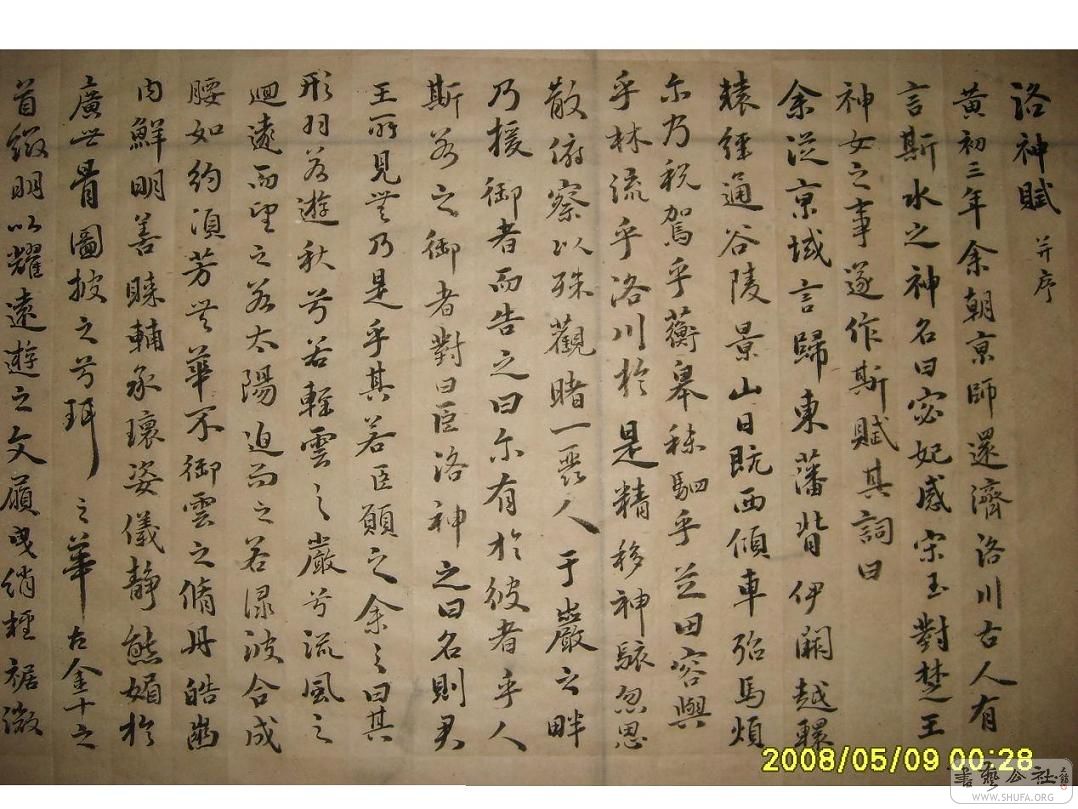 洛神賦 并序
黃初三年余朝京師還濟洛川古人有
言斯水之神名曰宓妃感宋玉對楚王
神女之事遂作斯賦其詞曰
余從京域言歸東藩背伊闕越轘
轅經通谷陵景山日既西傾車殆馬煩
尔乃税駕乎蘅皋秣駟乎芝田容與
乎林流乎洛川於是精移神駭忽思
散俯察以殊觀睹一麗人于巖之畔
乃援御者而告之曰尔有於彼者乎人
斯若之御者對曰臣洛神之曰名則君
王所見無乃是乎其若臣願之余之曰其
形羽若遊秋兮若輕雲之嚴兮流風之
迴遠而望之若太陽迫而之若渌波合成
腰如約湏芳無華不御雲之脩丹皓幽
内鮮明善睞輔承瓌姿儀靜態媚於
廣世骨圖披之兮珥之華古金十之
首綴明以耀遠遊之文屩曳綃輕裾微
2008/05/09 00:28
書藝公社
WWW.SHUFA.ORG